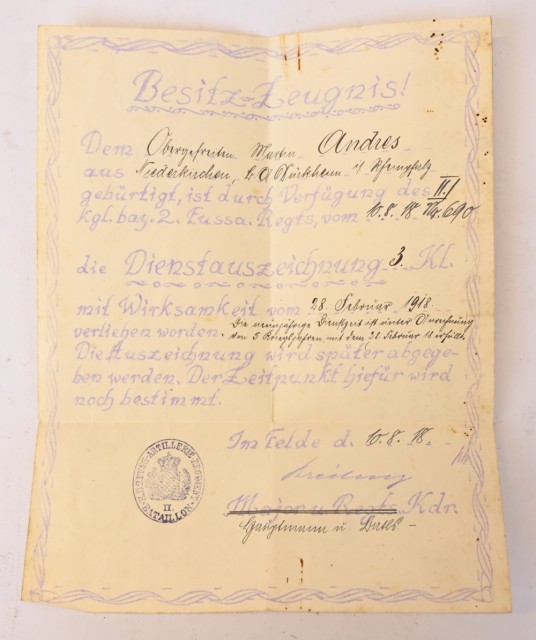 Besitz-Zeugnis!
Dem Obergefreiten Martin Andres
aus Niederkirchen, b. A Dürkheim i/ Rheinpfalz
gebürtigt, ist durch Verfügung des II./
kgl. bay. 2. Fussa. Regts, vom 10.8.18 No. 690
die Dienstauszeichnung 3. Kl.
mit Wirksamkeit vom 28. Februar 1918
verliehen worden. Die neunjährige Dienstzeit ist unter Anrechnung
von 5 Kriegsjahren mit dem 28. Februar 18 erfüllt.
Die Auszeichnung wird später abgege-
ben werden. Der Zeitpunkt hiefür wird
noch bestimmt.
Im Felde d. 10.8.18.
Major u. Regts. Kdr.
Hauptmann u.
ARTILLERIE
II.
BATAILLON